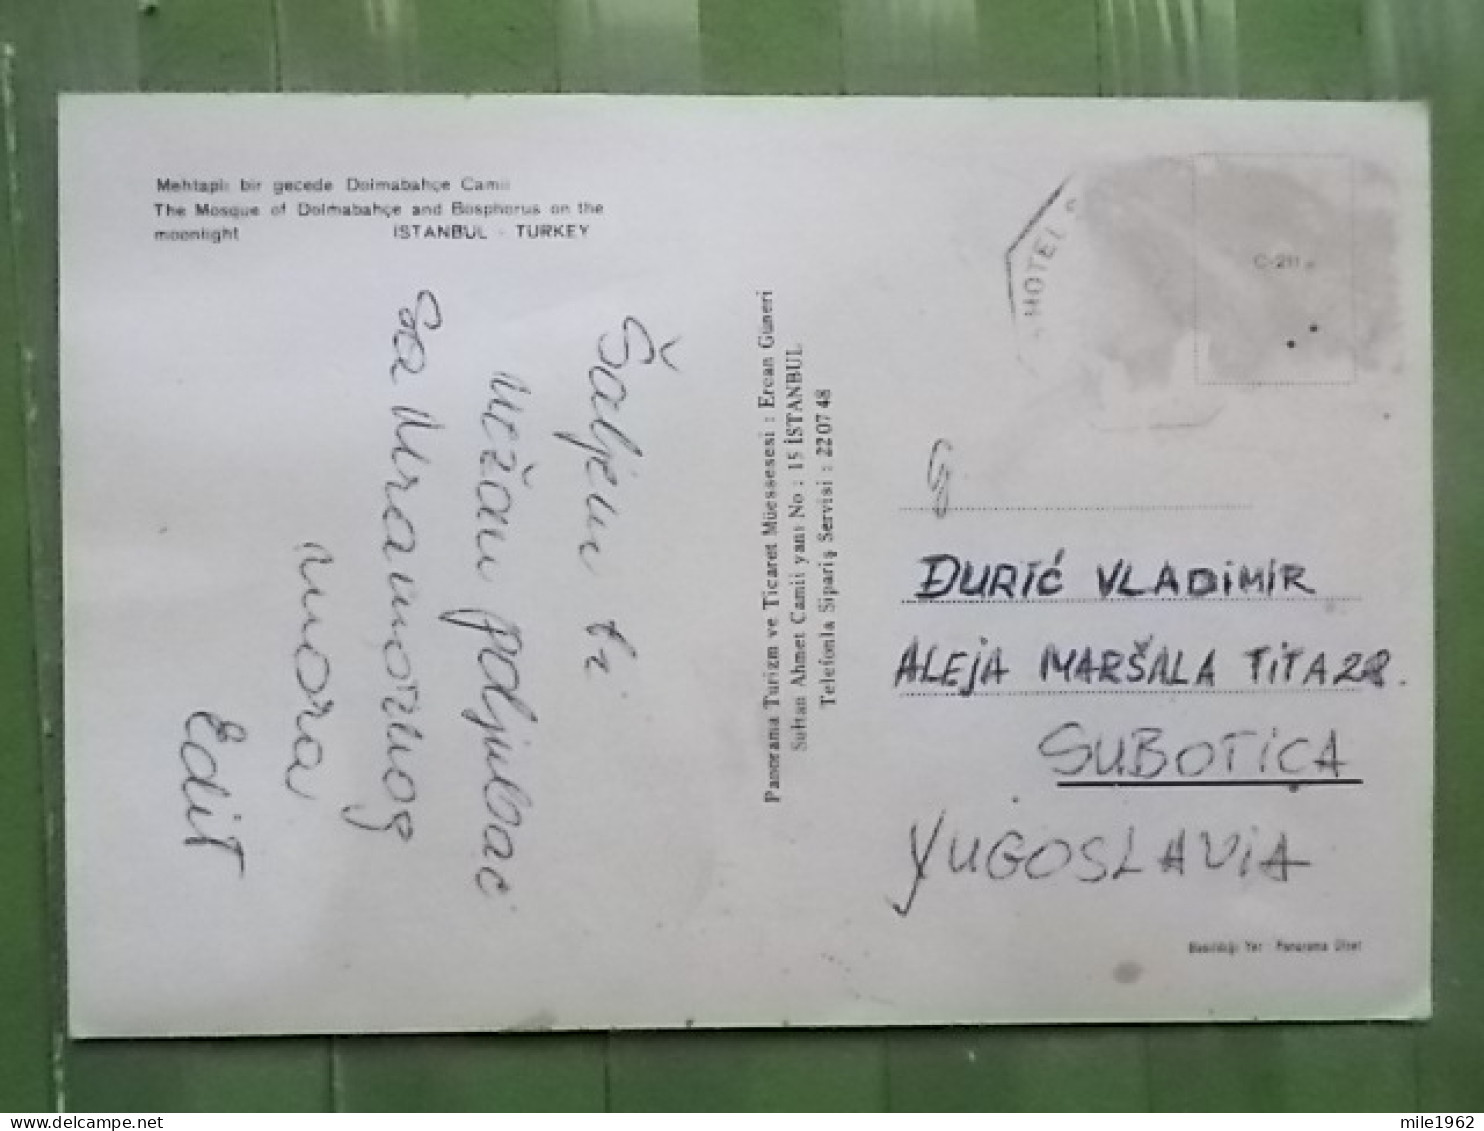 Mehtaplı bir gecede Dolmabahçe Camii
The Mosque of Dolmabahçe and Bosphorus on the
moonlight ISTANBUL - TURKEY
Šaljem ti
nežan poljubac
sa Mramornog
mora
Edit
Panorama Turizm ve Ticaret Müessesesi : Ercan Güneri
Sultan Ahmet Camii yanı No : 15 İSTANBUL
Telefonla Sipariş Servisi : 22 07 48
HOTEL
C-211
G
ĐURIĆ VLADIMIR
ALEJA MARŠALA TITA 28.
SUBOTICA
YUGOSLAVIA
Basıldığı Yer : Panorama Ofset
mile1962